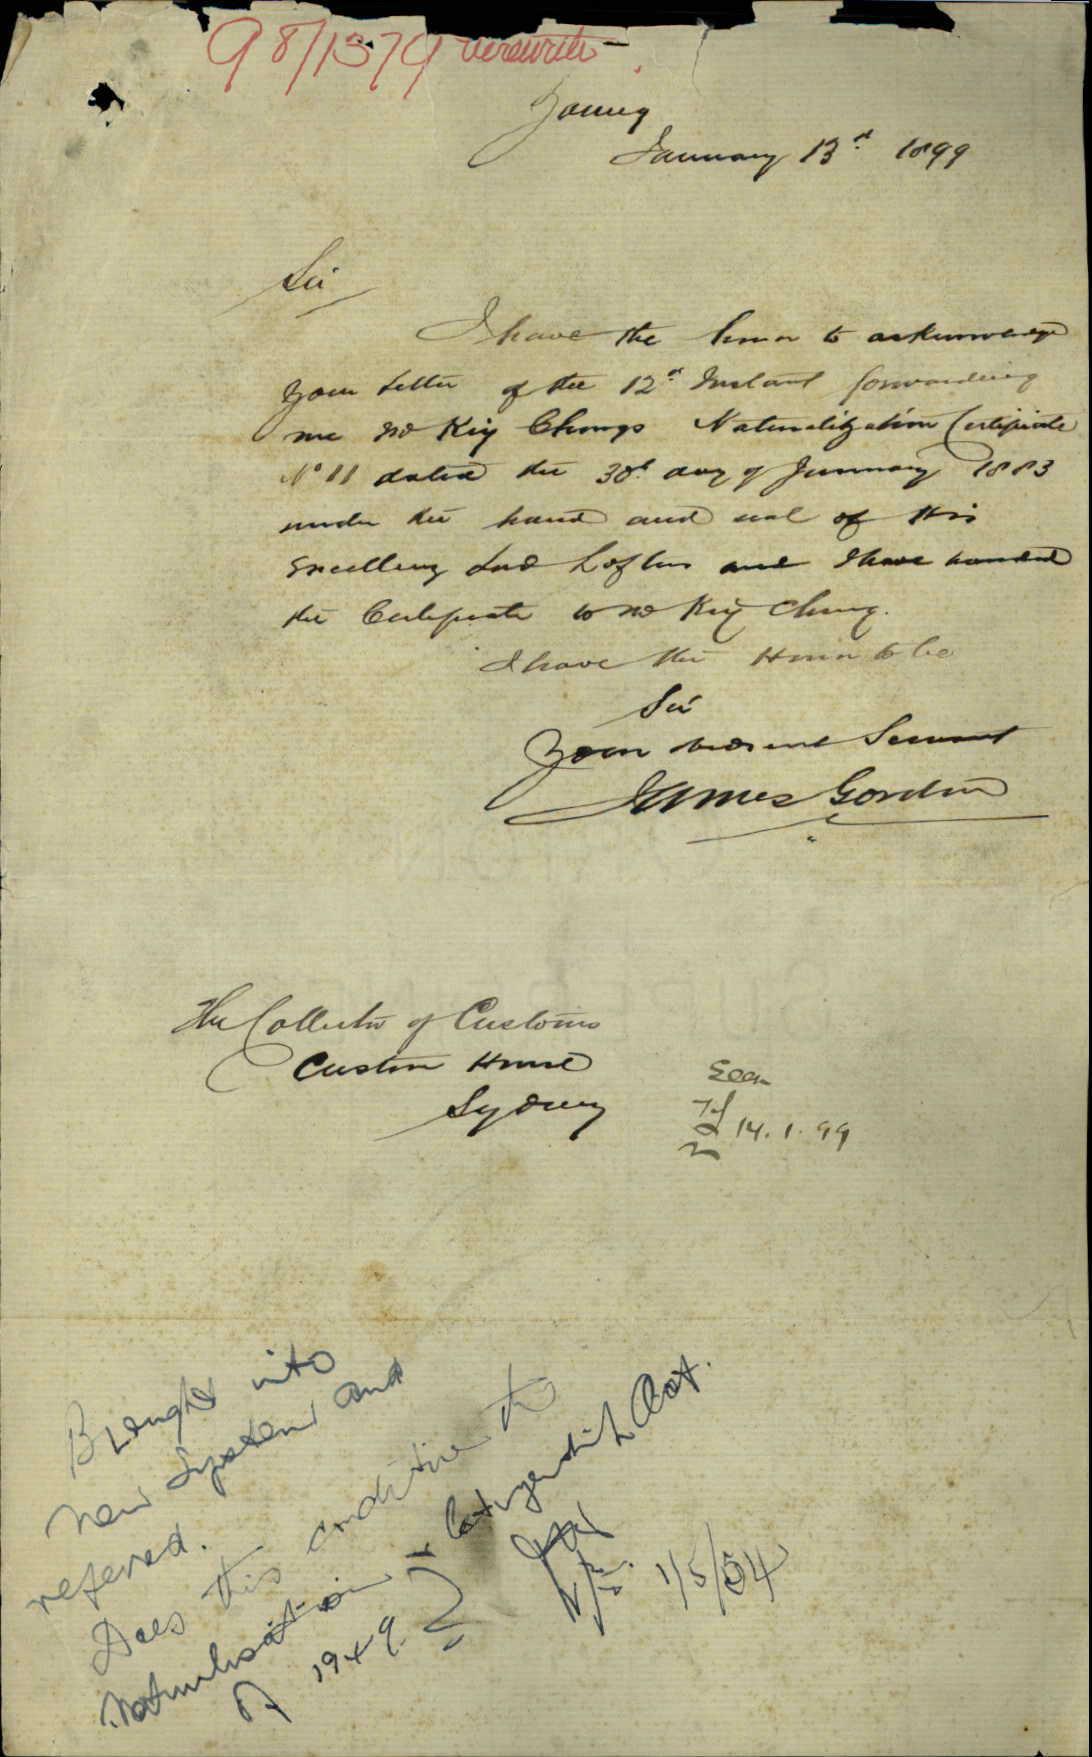 98/1379
Young
January 13th 1899
Sir
I have the honor to acknowledge
your letter of the 12th Instant forwarding
me Kig Chungs Naturalization Certificate
No 11 dated the 30th day of January 1883
under the hand and seal of His
Excellency Lord Loftus and I have handed
the Certificate to Kig Chung.
I have the Honor to be
Sir
Your obedient Servant
James Gordon
The Collector of Customs
Custom House
Sydney
Seen
14.1.99
Brought into
new System and
refered.
Does this
Naturalisation & Citizenship Act
of 1949?
1/5/54